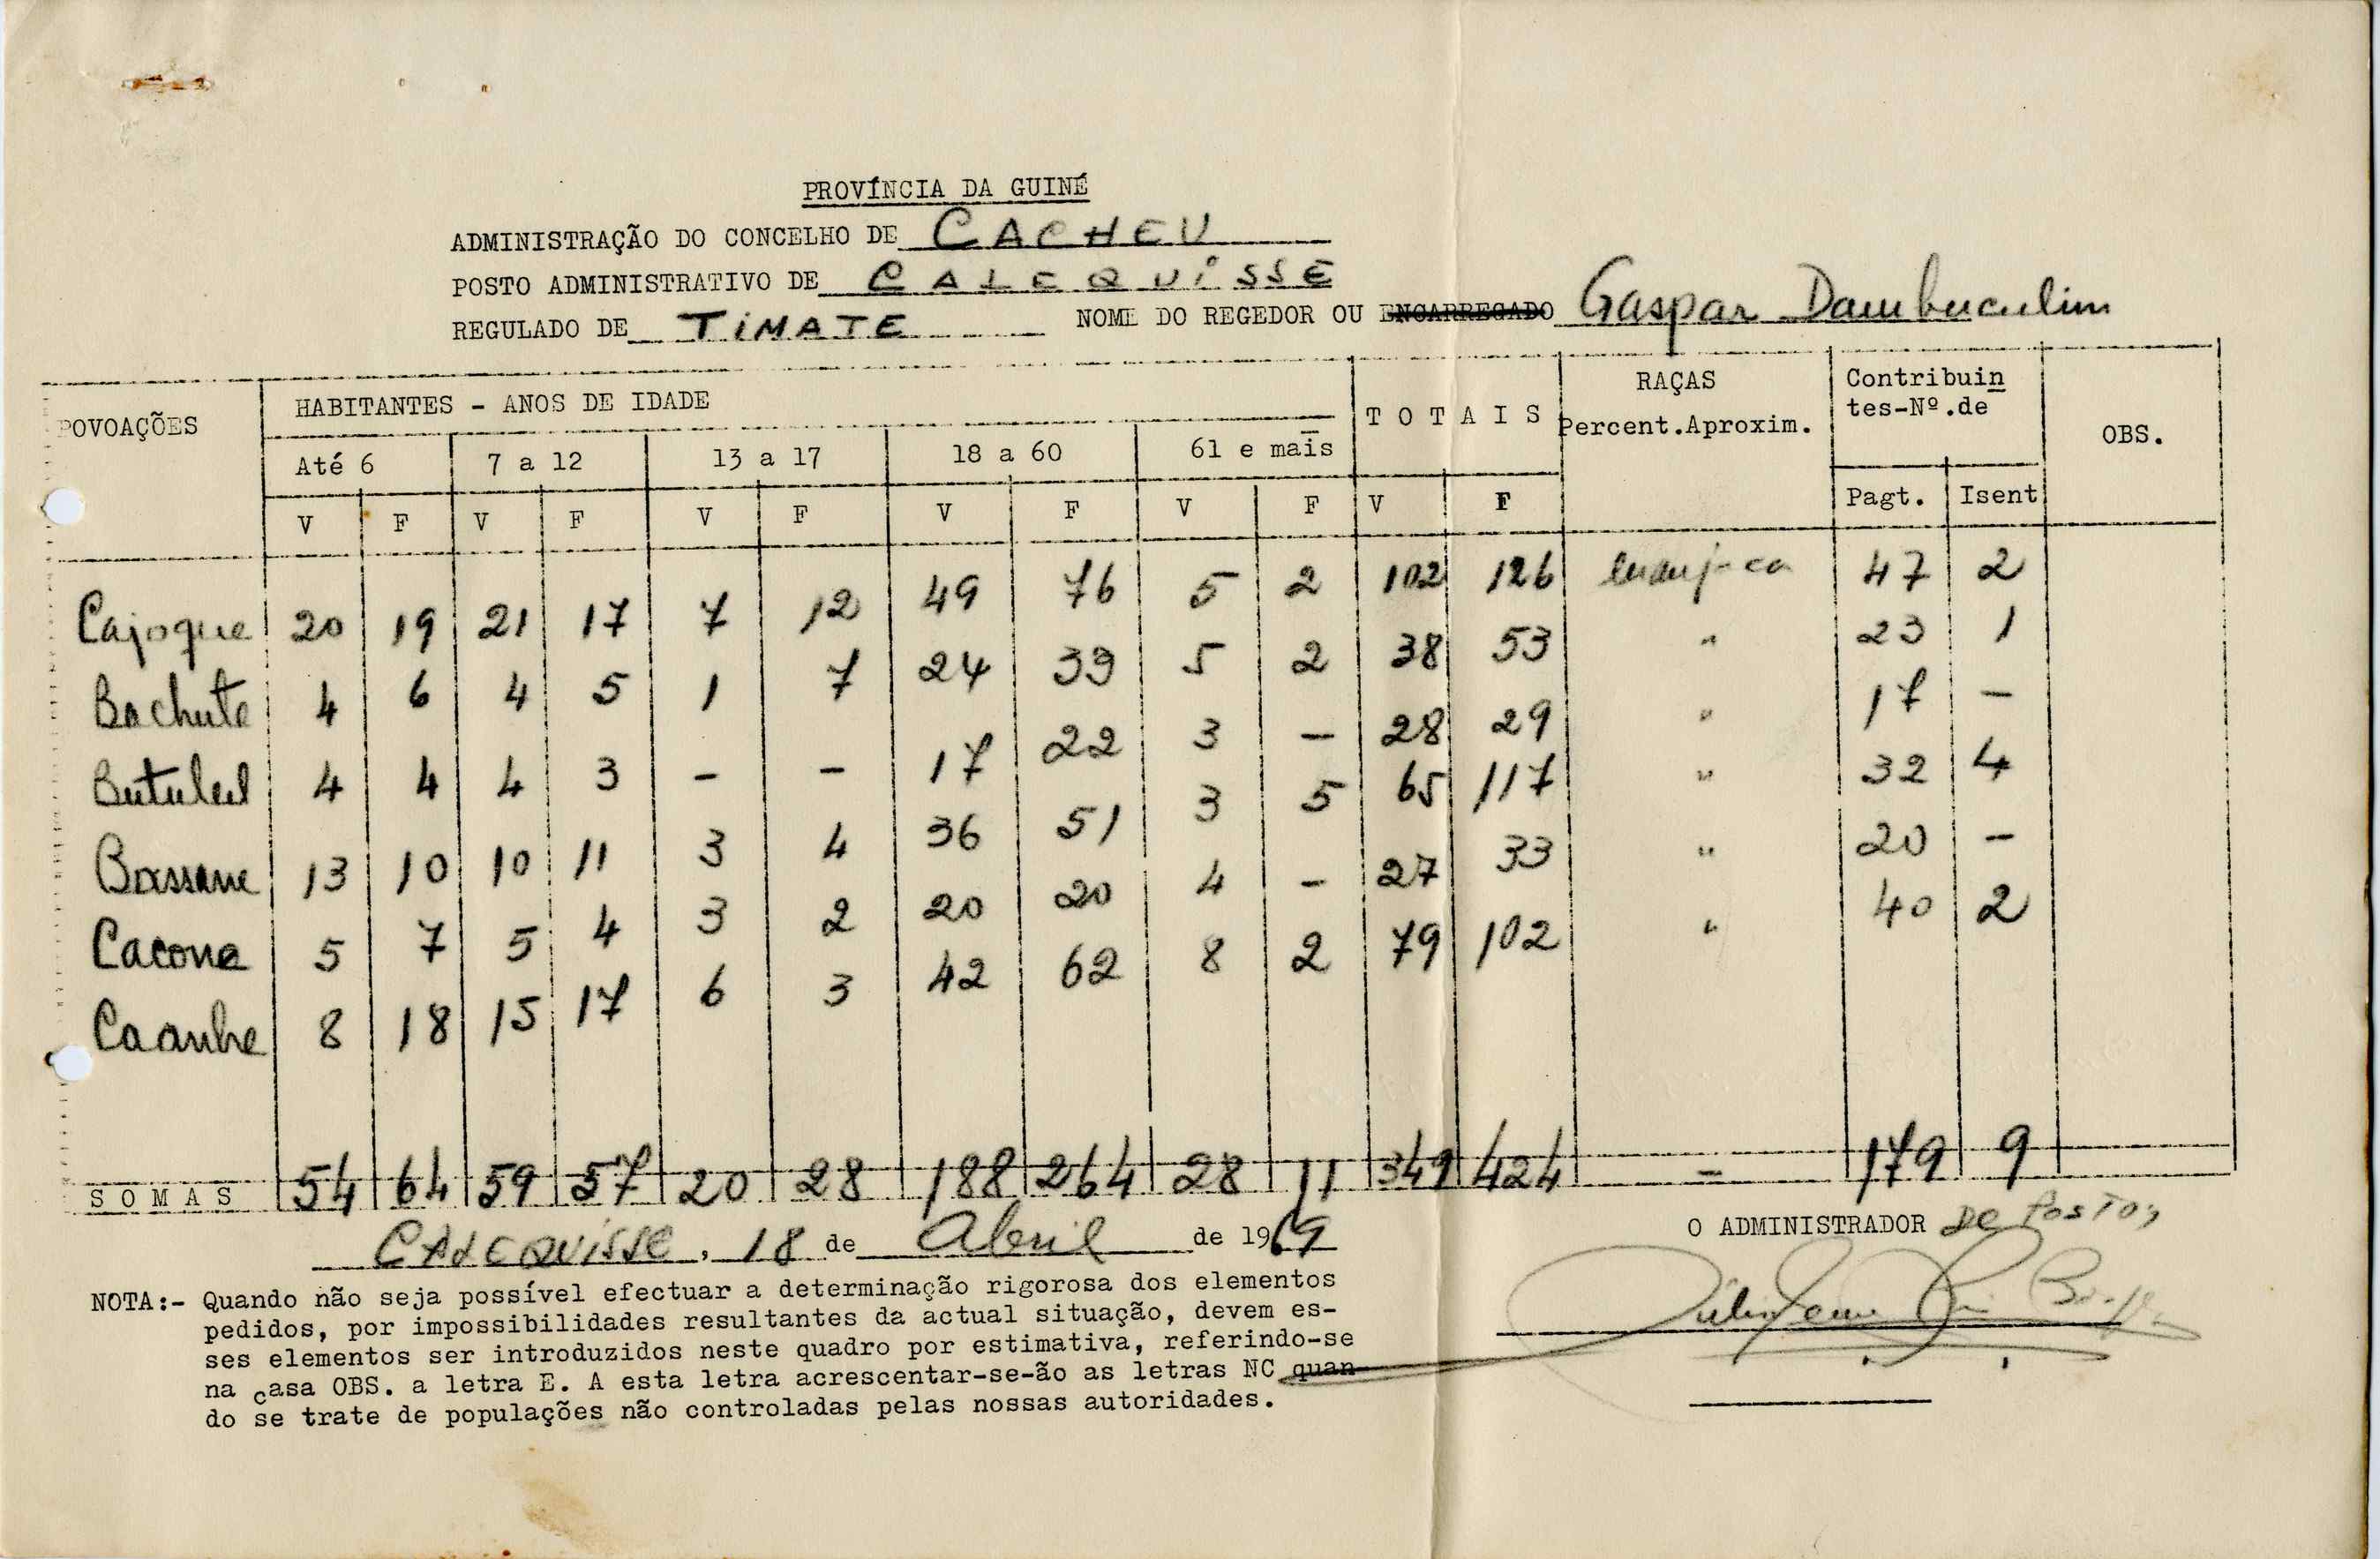 PROVÍNCIA DA GUINÉ
ADMINISTRAÇÃO DO CONCELHO DE CACHEU
POSTO ADMINISTRATIVO DE CALEQUISSE
REGULADO DE TIMATE NOME DO REGEDOR OU ENCARREGADO Gaspar Dambuculim
POVOAÇÕES HABITANTES - ANOS DE IDADE T O T A I S RAÇAS Percent.Aproxim. Contribuin tes-Nº.de OBS.
Até 6 7 a 12 13 a 17 18 a 60 61 e mais
V F V F V F V F V F V F Pagt. Isent
Cajoque 20 19 21 17 7 12 49 76 5 2 102 126 manjaca 47 2
Bachute 4 6 4 5 1 7 24 33 5 2 38 53 " 23 1
4 4 4 3 - - 17 22 3 - 28 29 " 17 -
13 10 10 11 3 4 36 51 3 5 65 117 " 32 4
Cacone 5 7 5 4 3 2 20 20 4 - 27 33 " 20 -
Caanhe 8 18 15 17 6 3 42 62 8 2 79 102 " 40 2
S O M A S 54 64 59 57 20 28 188 264 28 11 349 424 - 179 9
CALEQUISSE, 18 de Abril de 1969
O ADMINISTRADOR DE POSTO,
NOTA:- Quando não seja possível efectuar a determinação rigorosa dos elementos
pedidos, por impossibilidades resultantes da actual situação, devem es-
ses elementos ser introduzidos neste quadro por estimativa, referindo-se
na casa OBS. a letra E. A esta letra acrescentar-se-ão as letras NC quan
do se trate de populações não controladas pelas nossas autoridades.